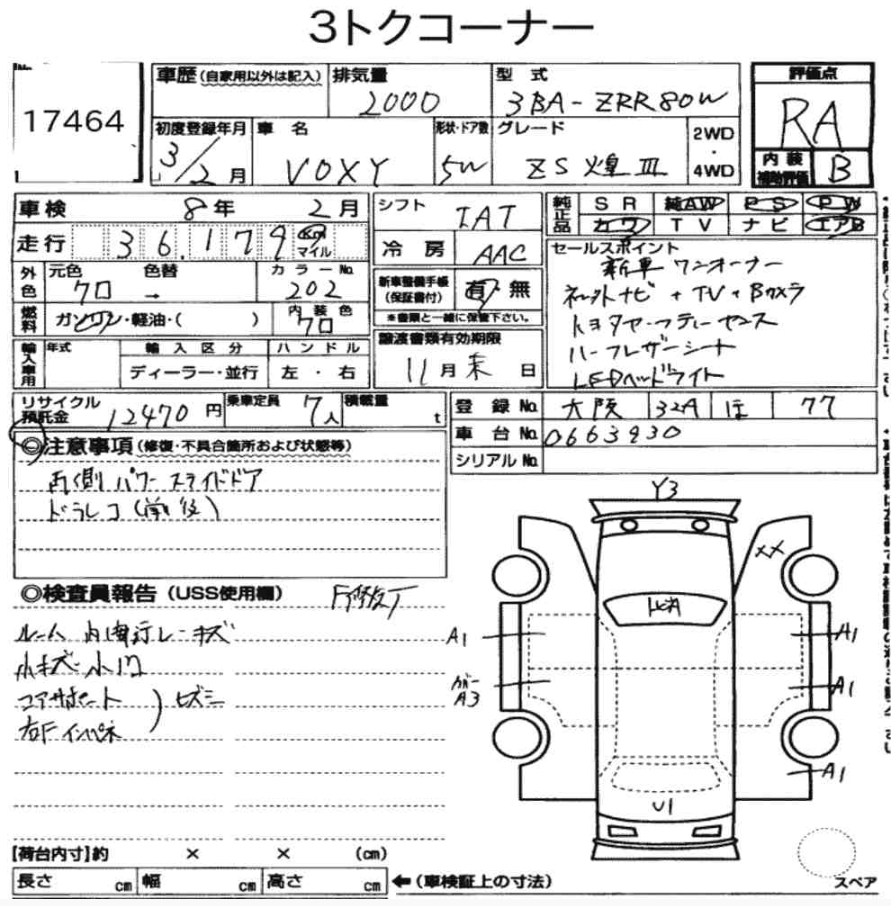 3トクコーナー
No.
17464
車歴(自家用以外は記入)
排気量
2000
型式
3BA-ZRR80W
評価点
RA
初度登録年月
3/2月
車名
VOXY
形状・ドア数
5W
グレード
ZS 煌 III
2WD
・
4WD
内装
補助評価
B
車検 8年 2月
シフト
IAT
純正品
SR 純AW PS PW
カワ TV ナビ エアB
走行
36,179
Km
マイル
冷房
AAC
セールスポイント
新車ワンオーナー
ネットナビ + TV + Bカメラ
トヨタセーフティーセンス
ハーフレザーシート
LEDヘッドライト
外色
元色
クロ
色替
→
カラーNo.
202
新車整備手帳
(保証書付)
有・無
※書類と一緒に保管下さい。
燃料
ガソリン・軽油・( )
内装色
クロ
譲渡書類有効期限
11月末日
輸入車用
年式
輸入区分
ハンドル
ディーラー・並行
左・右
リサイクル
預託金
12470円
乗車定員
7人
積載量
t
登録No.
大阪 32A ほ 77
車台No.
0663930
シリアルNo.
◎注意事項(修復・不具合箇所および状態等)
両側パワースライドドア
ドラレコ(前後)
◎検査員報告(USS使用欄)
ルーム内
キズ
小キズ小凹
コアサポート
右Fインパネ
ヒズミ
Y3
XX
A1
A1
カバー
A3
A1
A1
U1
【荷台内寸】約 × × (cm)
長さ cm 幅 cm 高さ cm
←(車検証上の寸法)
スペア